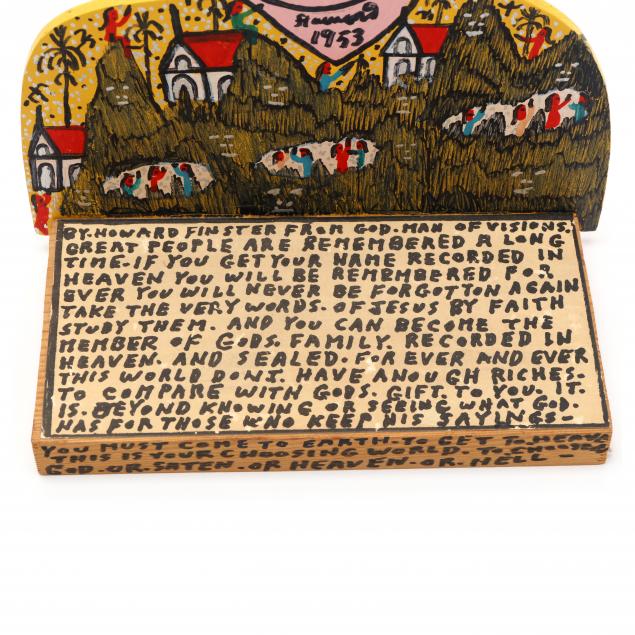 Howard
1953
BY. HOWARD FINSTER FROM GOD. MAN OF VISIONS.
GREAT PEOPLE ARE REMEMBERED A LONG
TIME. IF YOU GET YOUR NAME RECORDED IN
HEAVEN YOU WILL BE REMEMBERED FOR
EVER YOU WILL NEVER BE FORGOTTON AGAIN
TAKE THE VERY WORDS. OF JESUS BY FAITH
STUDY THEM. AND YOU CAN BECOME THE
MEMBER OF GODS. FAMILY. RECORDED IN
HEAVEN. AND SEALED. FOR EVER AND EVER
THIS WORLD DONT. HAVE ANOUGH RICHES.
TO COMPARE WITH GODS. GIFT. TO YOU. IT.
IS. BEYOND KNOWING OR SEEING WHAT GOD.
HAS FOR THOSE WHO KEEP HIS SAYINGS -
YOU MUST COME TO EARTH. TO GET TO. HEAVE
THIS IS YOUR CHOOSING WORLD. TO CHOOSE
GOD. OR. SATEN. OR HEAVEN. OR. HELL -